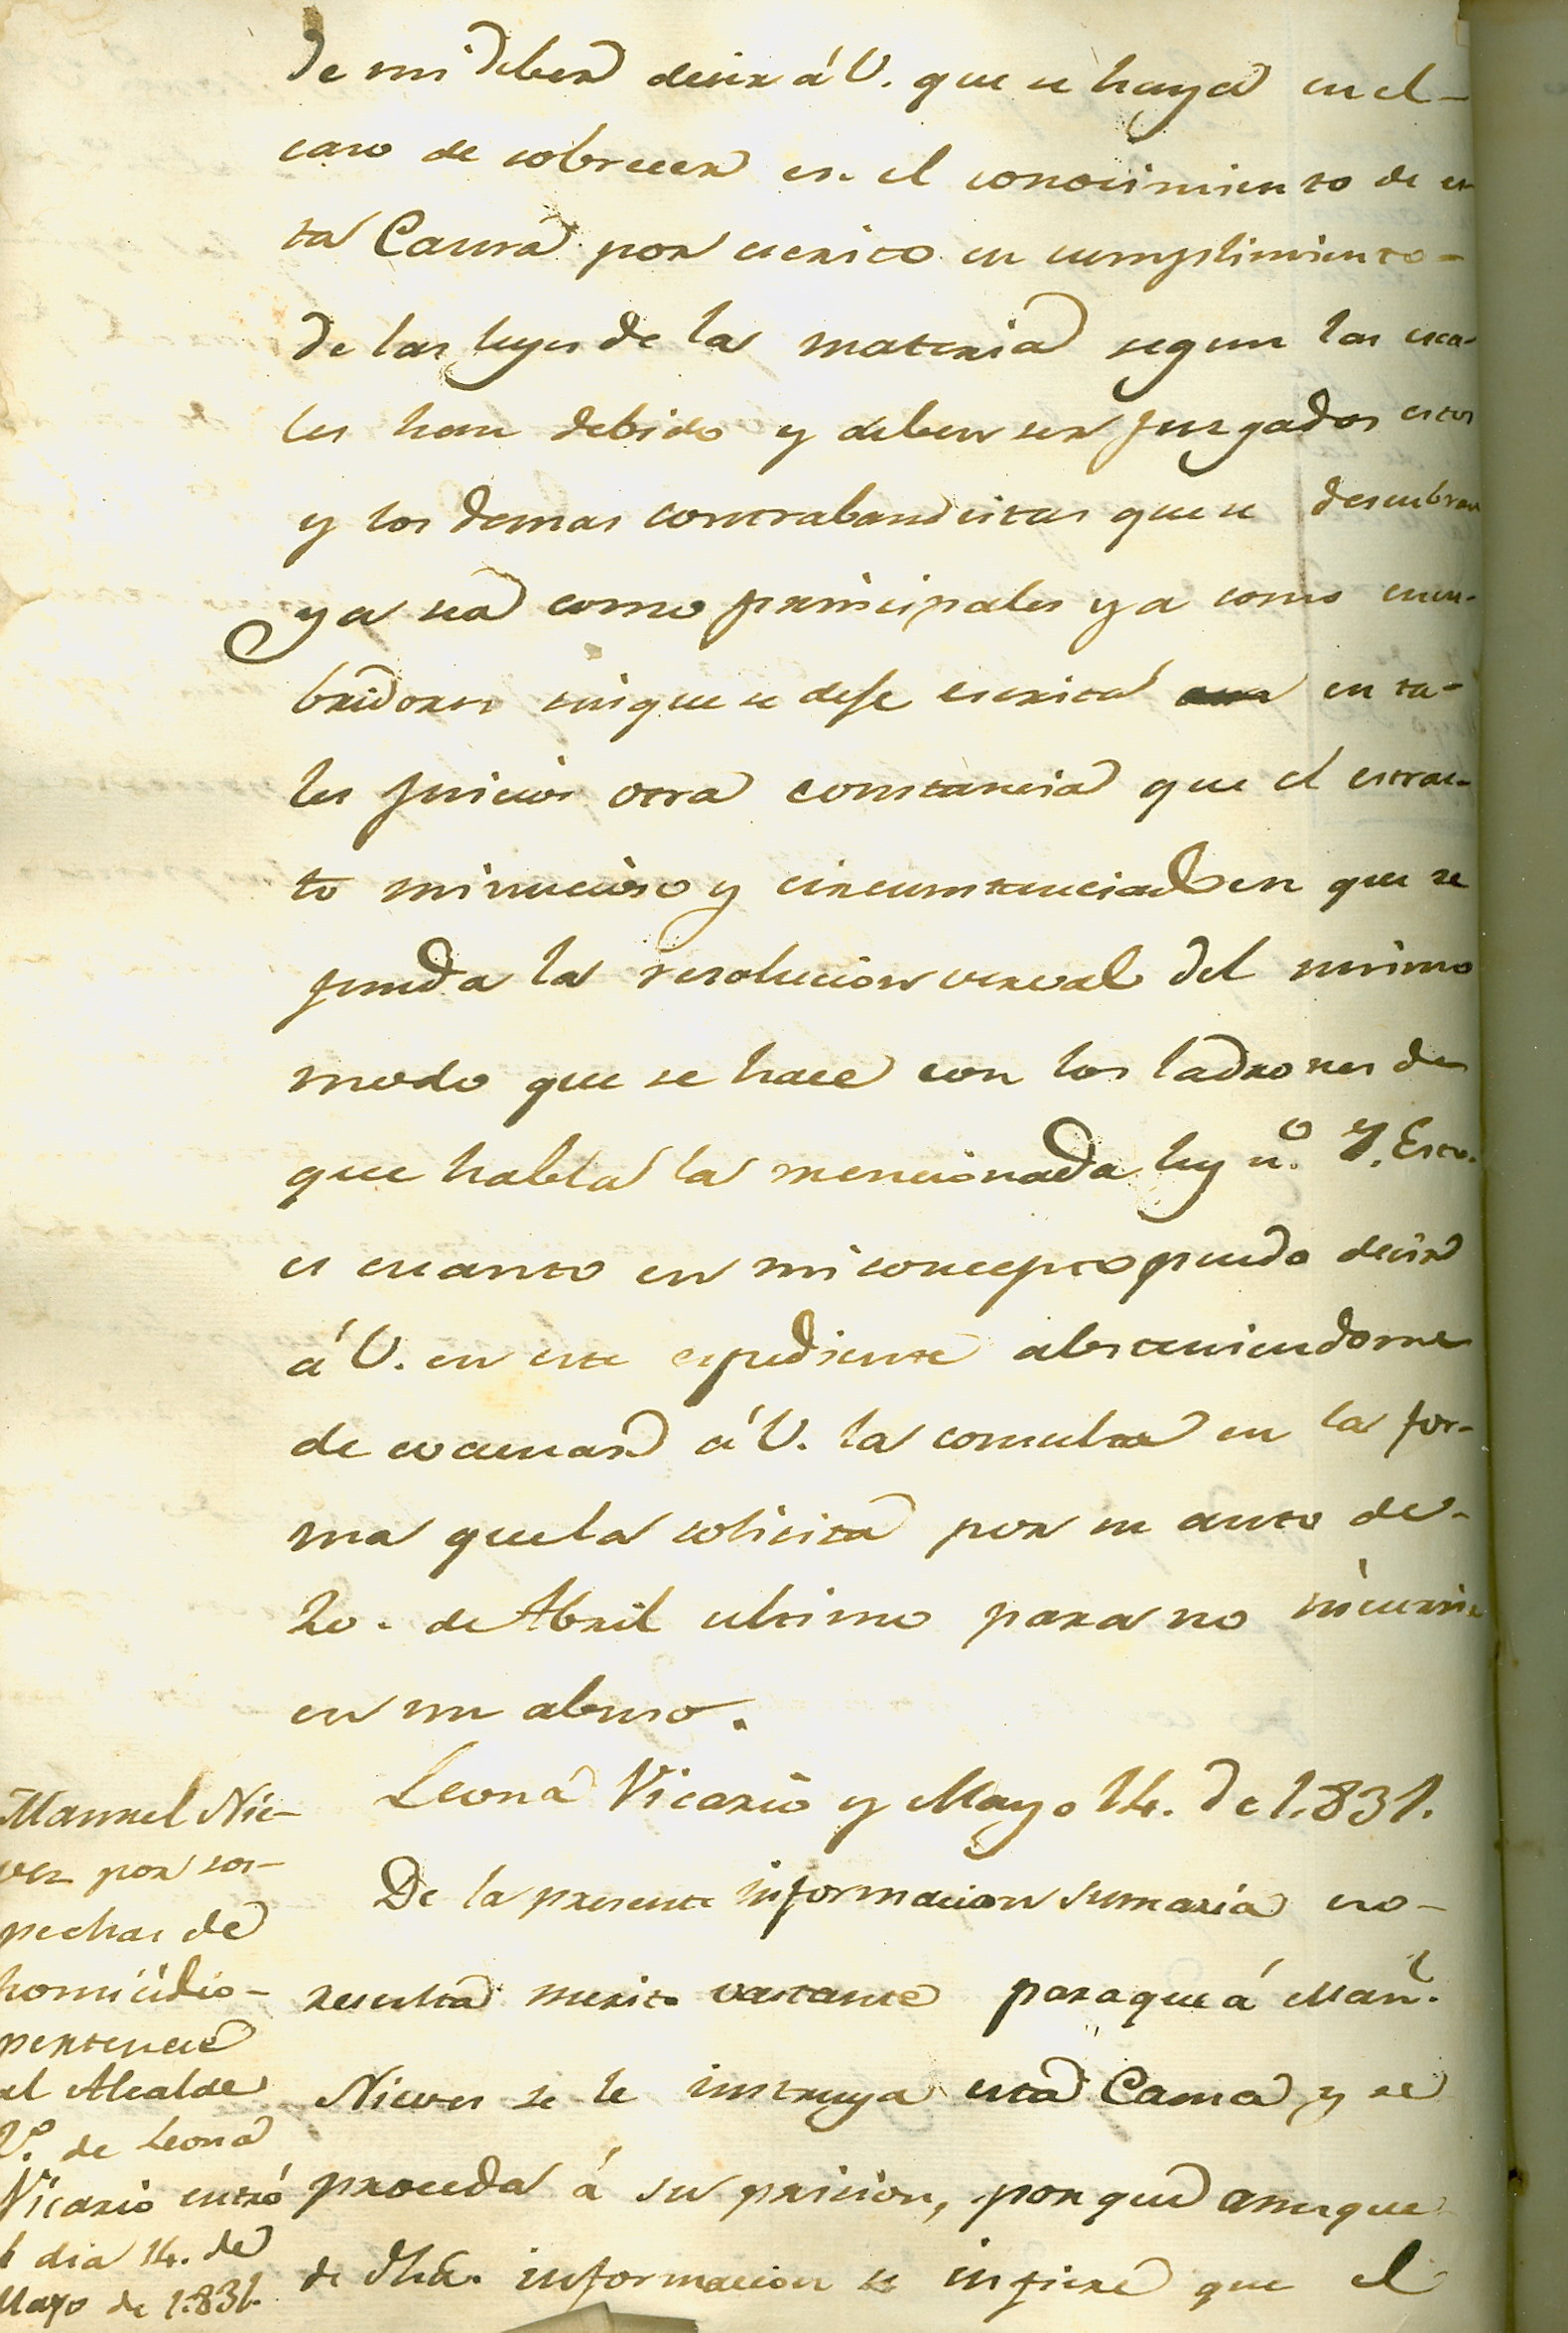 de mi deber decir á V. que se haya en el-
caso de sobreceer en el conocimiento de es-
ta Causa por escrito en cumplimiento-
de las leyes de la materia segun las cua-
les han debido y deben ser jusgados estos
y los demas contrabandistas que se descubran
ya sea como principales ya como encu-
bridores sin que se deje escrita en ta-
les juicios otra constancia que el estrac-
to minucioso y circunstanciado en que se
funda la resolucion verval del mismo
modo que se hace con los ladrones de
que habla la mencionada ley n.º 7. Esto.
es cuanto en mi concepto puedo decir
á V. en este espediente absteniendome
de evacuar á V. la consulta en la for-
ma que la solicita por su auto de-
20. de Abril ultimo para no incurrir
en un abuso.
Leona Vicario y Mayo 14. de 1.831.
Manuel Nie-
ves por sos-
pechas de
homicidio-
pertenece
al Alcalde
2.º de Leona
Vicario entró
el dia 14. de
Mayo de 1.831.
De la presente informacion sumaria no-
resulta merito vastante para que á Man.l
Nieves se le instruya esta Causa y se
proceda á su pricion, por que aunque
de dha. informacion se infiere que el